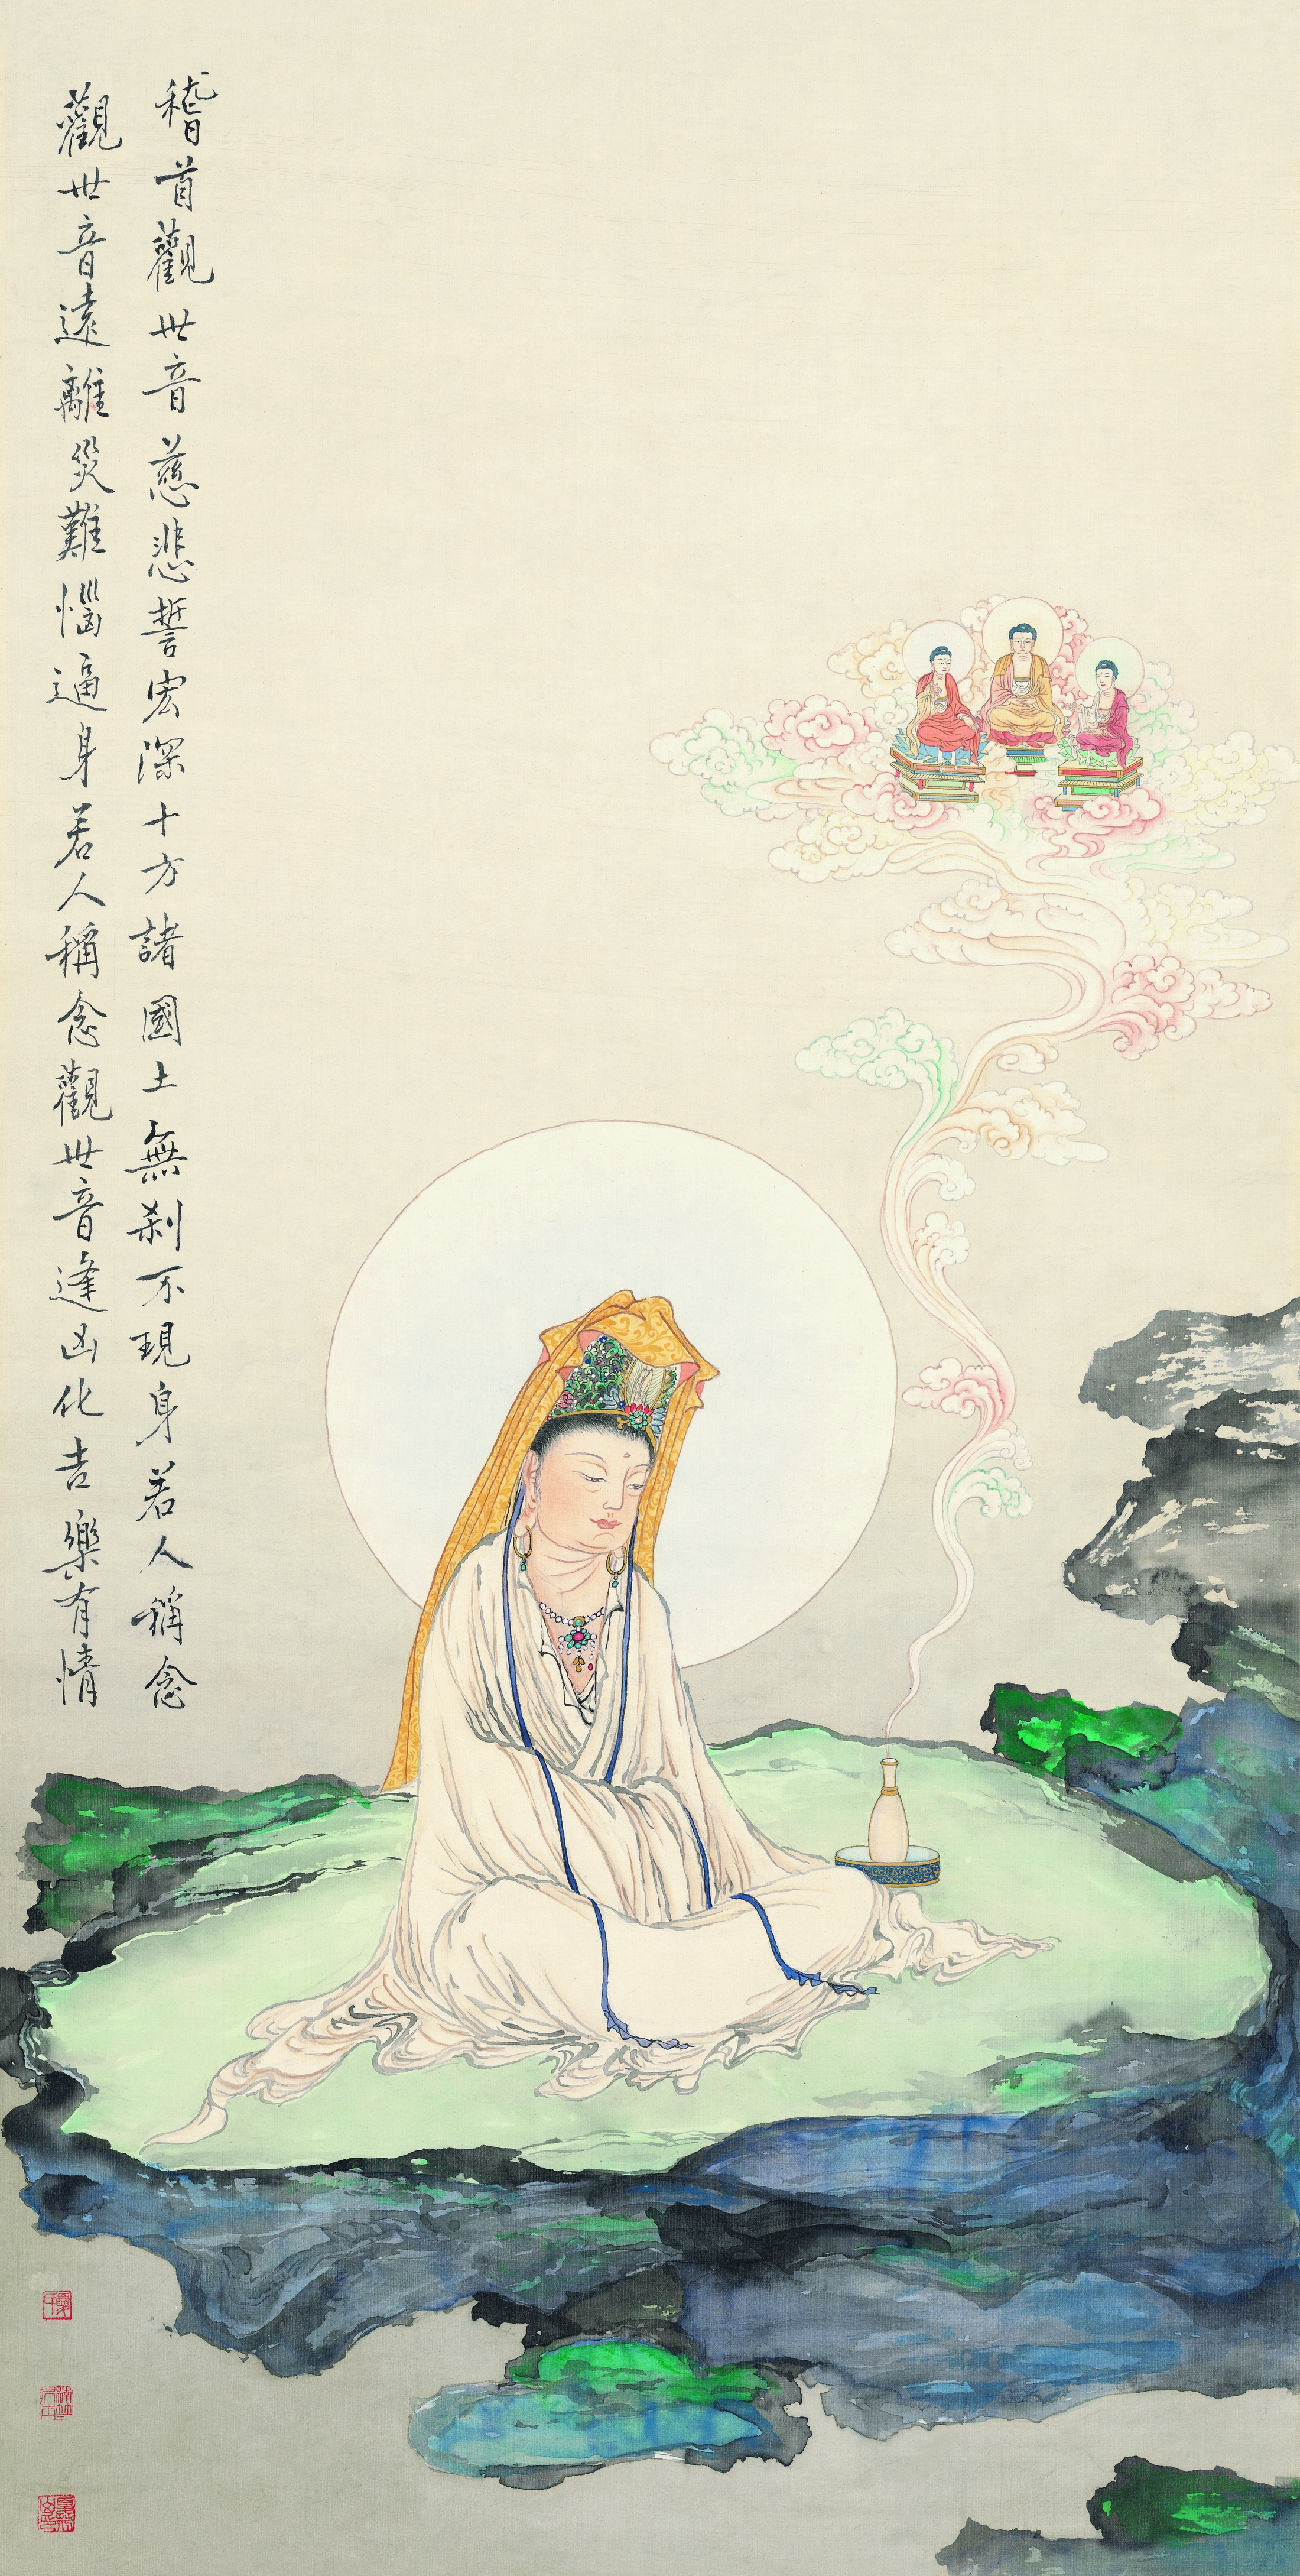 稽首觀世音慈悲誓宏深十方諸國土無刹不現身若人稱念
觀世音遠離災難惱逼身若人稱念觀世音逢凶化吉樂有情